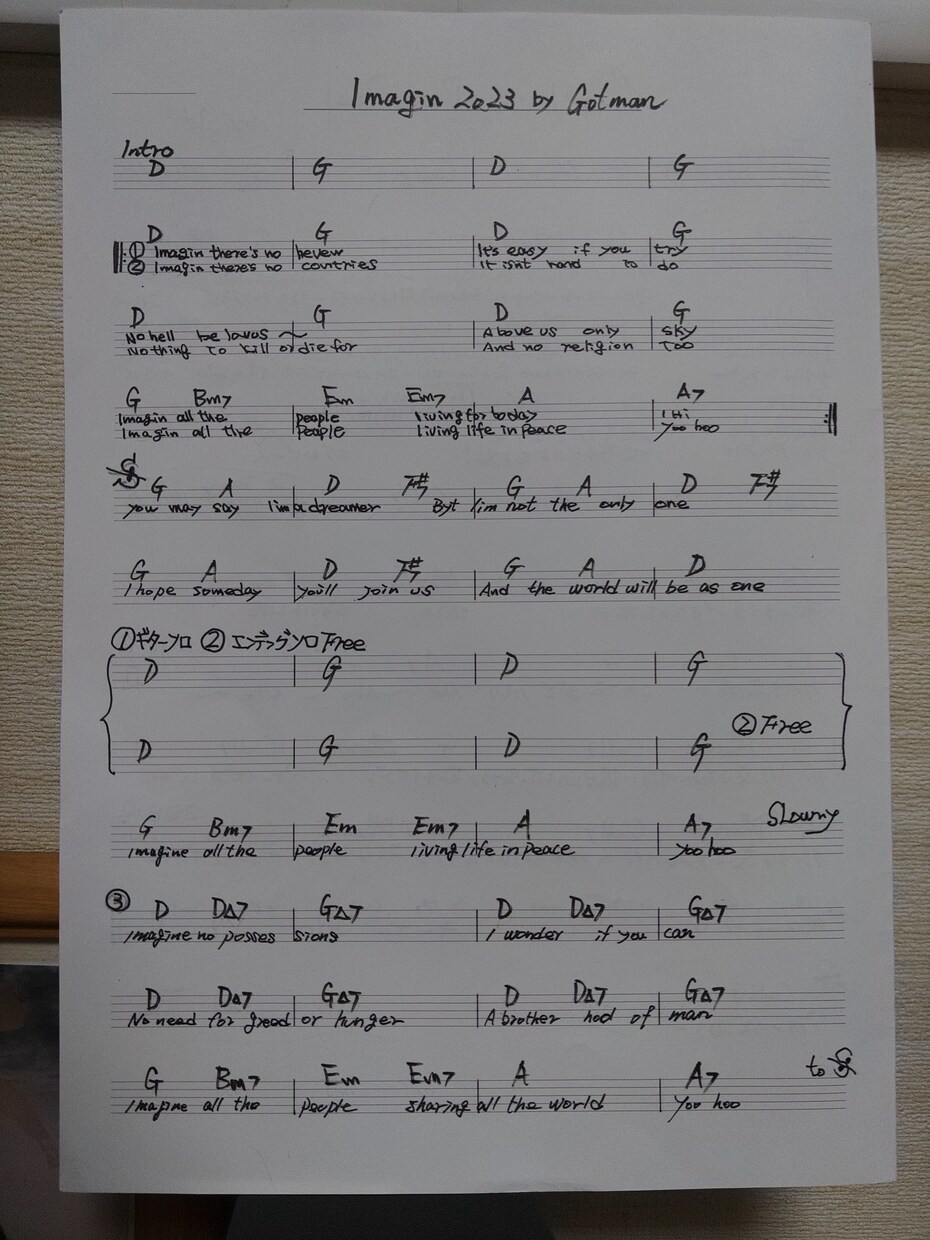 Imagin 2023 by Gotman
Intro
D G D G
D G D G
① Imagin there's no heven It's easy if you try
② Imagin there's no countries It isnt hard to do
D G D G
No hell be lovus ~ Above us only sky
Nothing to kill or die for And no religion too
G Bm7 Em Em7 A A7
Imagin all the people living for today I Hi
Imagin all the people living life in peace yoo hoo
G A D F#7 G A D F#7
you may say I'm a dreamer Byt I'm not the only one
G A D F#7 G A D
I hope someday you'll join us And the world will be as one
①ギターソロ ② エンディングソロ Free
D G D G
② Free
D G D G
G Bm7 Em Em7 A A7 Slowry
Imagine all the people living life in peace yoo hoo
③ D D△7 G△7 D D△7 G△7
Imagine no posses sions I wonder if you can
D D△7 G△7 D D△7 G△7
No need for greed or hunger A brother hod of man
to
G Bm7 Em Em7 A A7
Imagine all the people sharing all the world yoo hoo